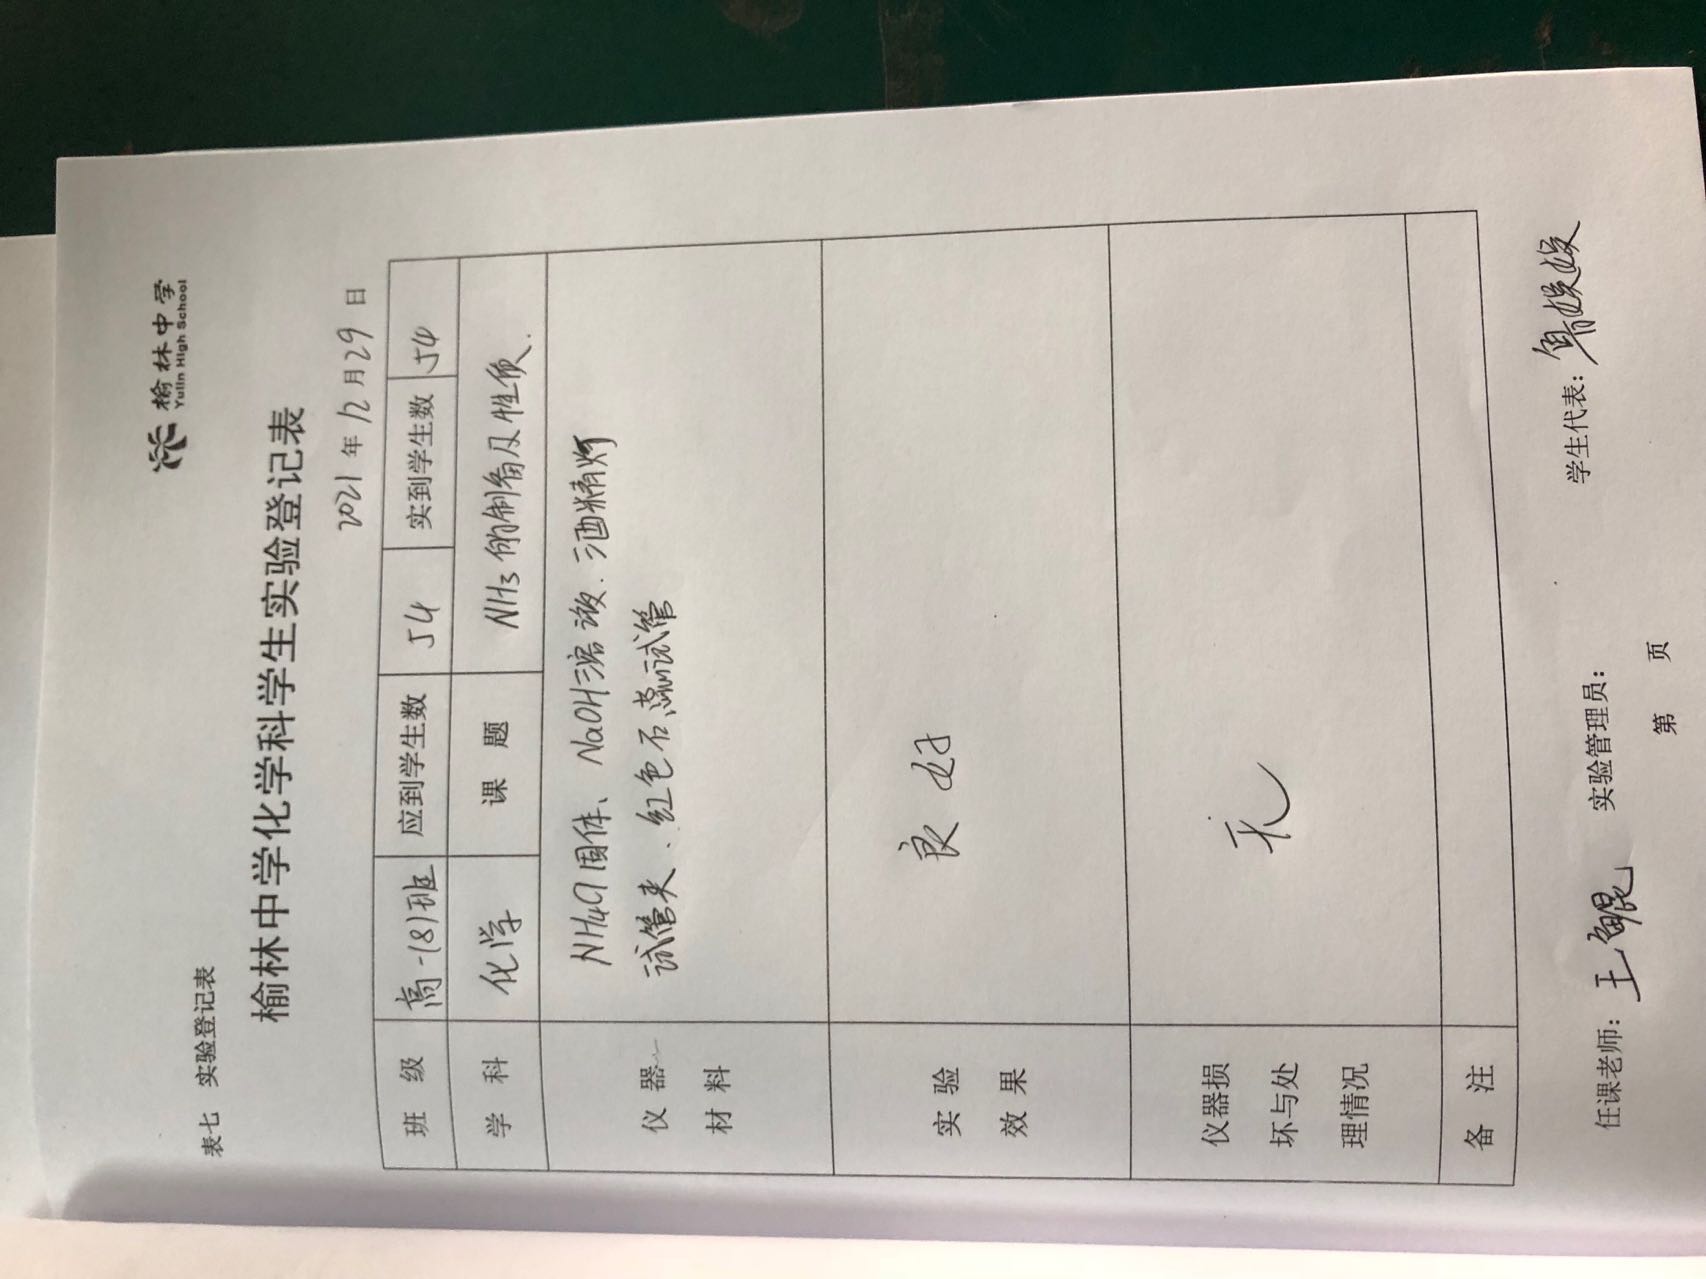 榆林中学
Yulin High School
表七 实验登记表
榆林中学化学科学生实验登记表
2021年12月29日
班 级 高一(8)班 应到学生数 54 实到学生数 54
学 科 化学 课 题 NH3的制备及性质.
仪 器
材 料
NH4Cl固体、NaOH溶液.酒精灯
试管夹.红色石蕊试管
实 验
效 果
良好
仪器损
坏与处
理情况
无
备 注
任课老师: 王 实验管理员: 学生代表:
第 页